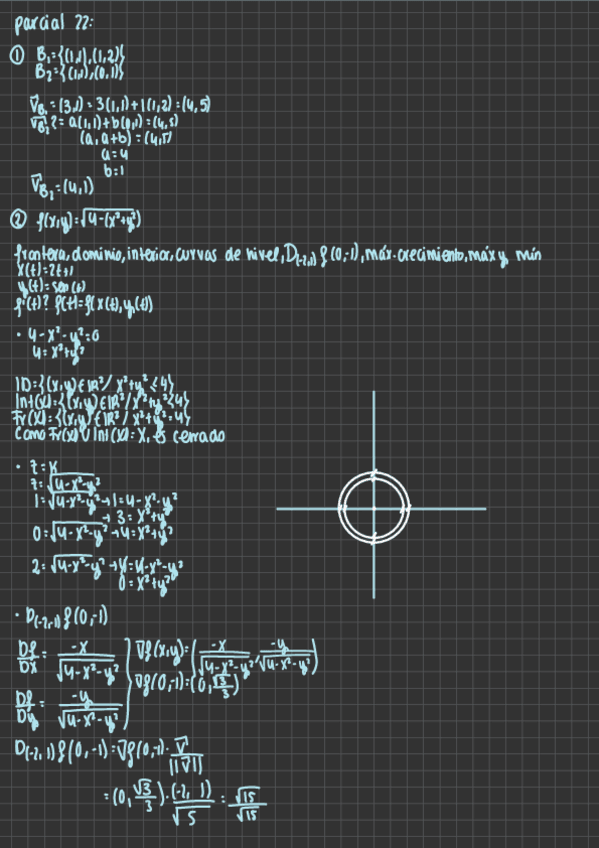 parcial 22:
① B₁={(1,1),(1,2)}
B₂={(1,1),(0,1)}
V⃗_B₁=(3,1)=3(1,1)+1(1,2)=(4,5)
V⃗_B₂?=a(1,1)+b(0,1)=(4,5)
(a,a+b)=(4,5)
a=4
b=1
V⃗_B₂=(4,1)
② f(x,y)=√(4-(x²+y²))
frontera, dominio, interior, curvas de nivel, D(-2,1) f(0,-1), máx. crecimiento, máx y mín
x(t)=2t+1
y(t)=sen(t)
f'(t)? f(t)=f(x(t),y(t))
· 4-x²-y²=0
4=x²+y²
ID={(x,y)∈IR²/ x²+y²≤4}
Int(X)={(x,y)∈IR²/x²+y²<4}
Fr(X)={(x,y)∈IR²/ x²+y²=4}
Como Fr(X)∪Int(X)=X, es cerrado
· z=K
z=√(4-x²-y²)
1=√(4-x²-y²)→1=4-x²-y²
→3=x²+y²
0=√(4-x²-y²)→4=x²+y²
2=√(4-x²-y²)→4=4-x²-y²
0=x²+y²
· D(-2,1) f(0,-1)
Df/Dx = -x/√(4-x²-y²) } ∇f(x,y)=(-x/√(4-x²-y²), -y/√(4-x²-y²))
∇f(0,-1)=(0,√3/3)
Df/Dy = -y/√(4-x²-y²)
D(-2,1) f(0,-1)=∇f(0,-1)·V⃗/||V⃗||
=(0,√3/3)·(-2,1)/√5=√15/√15